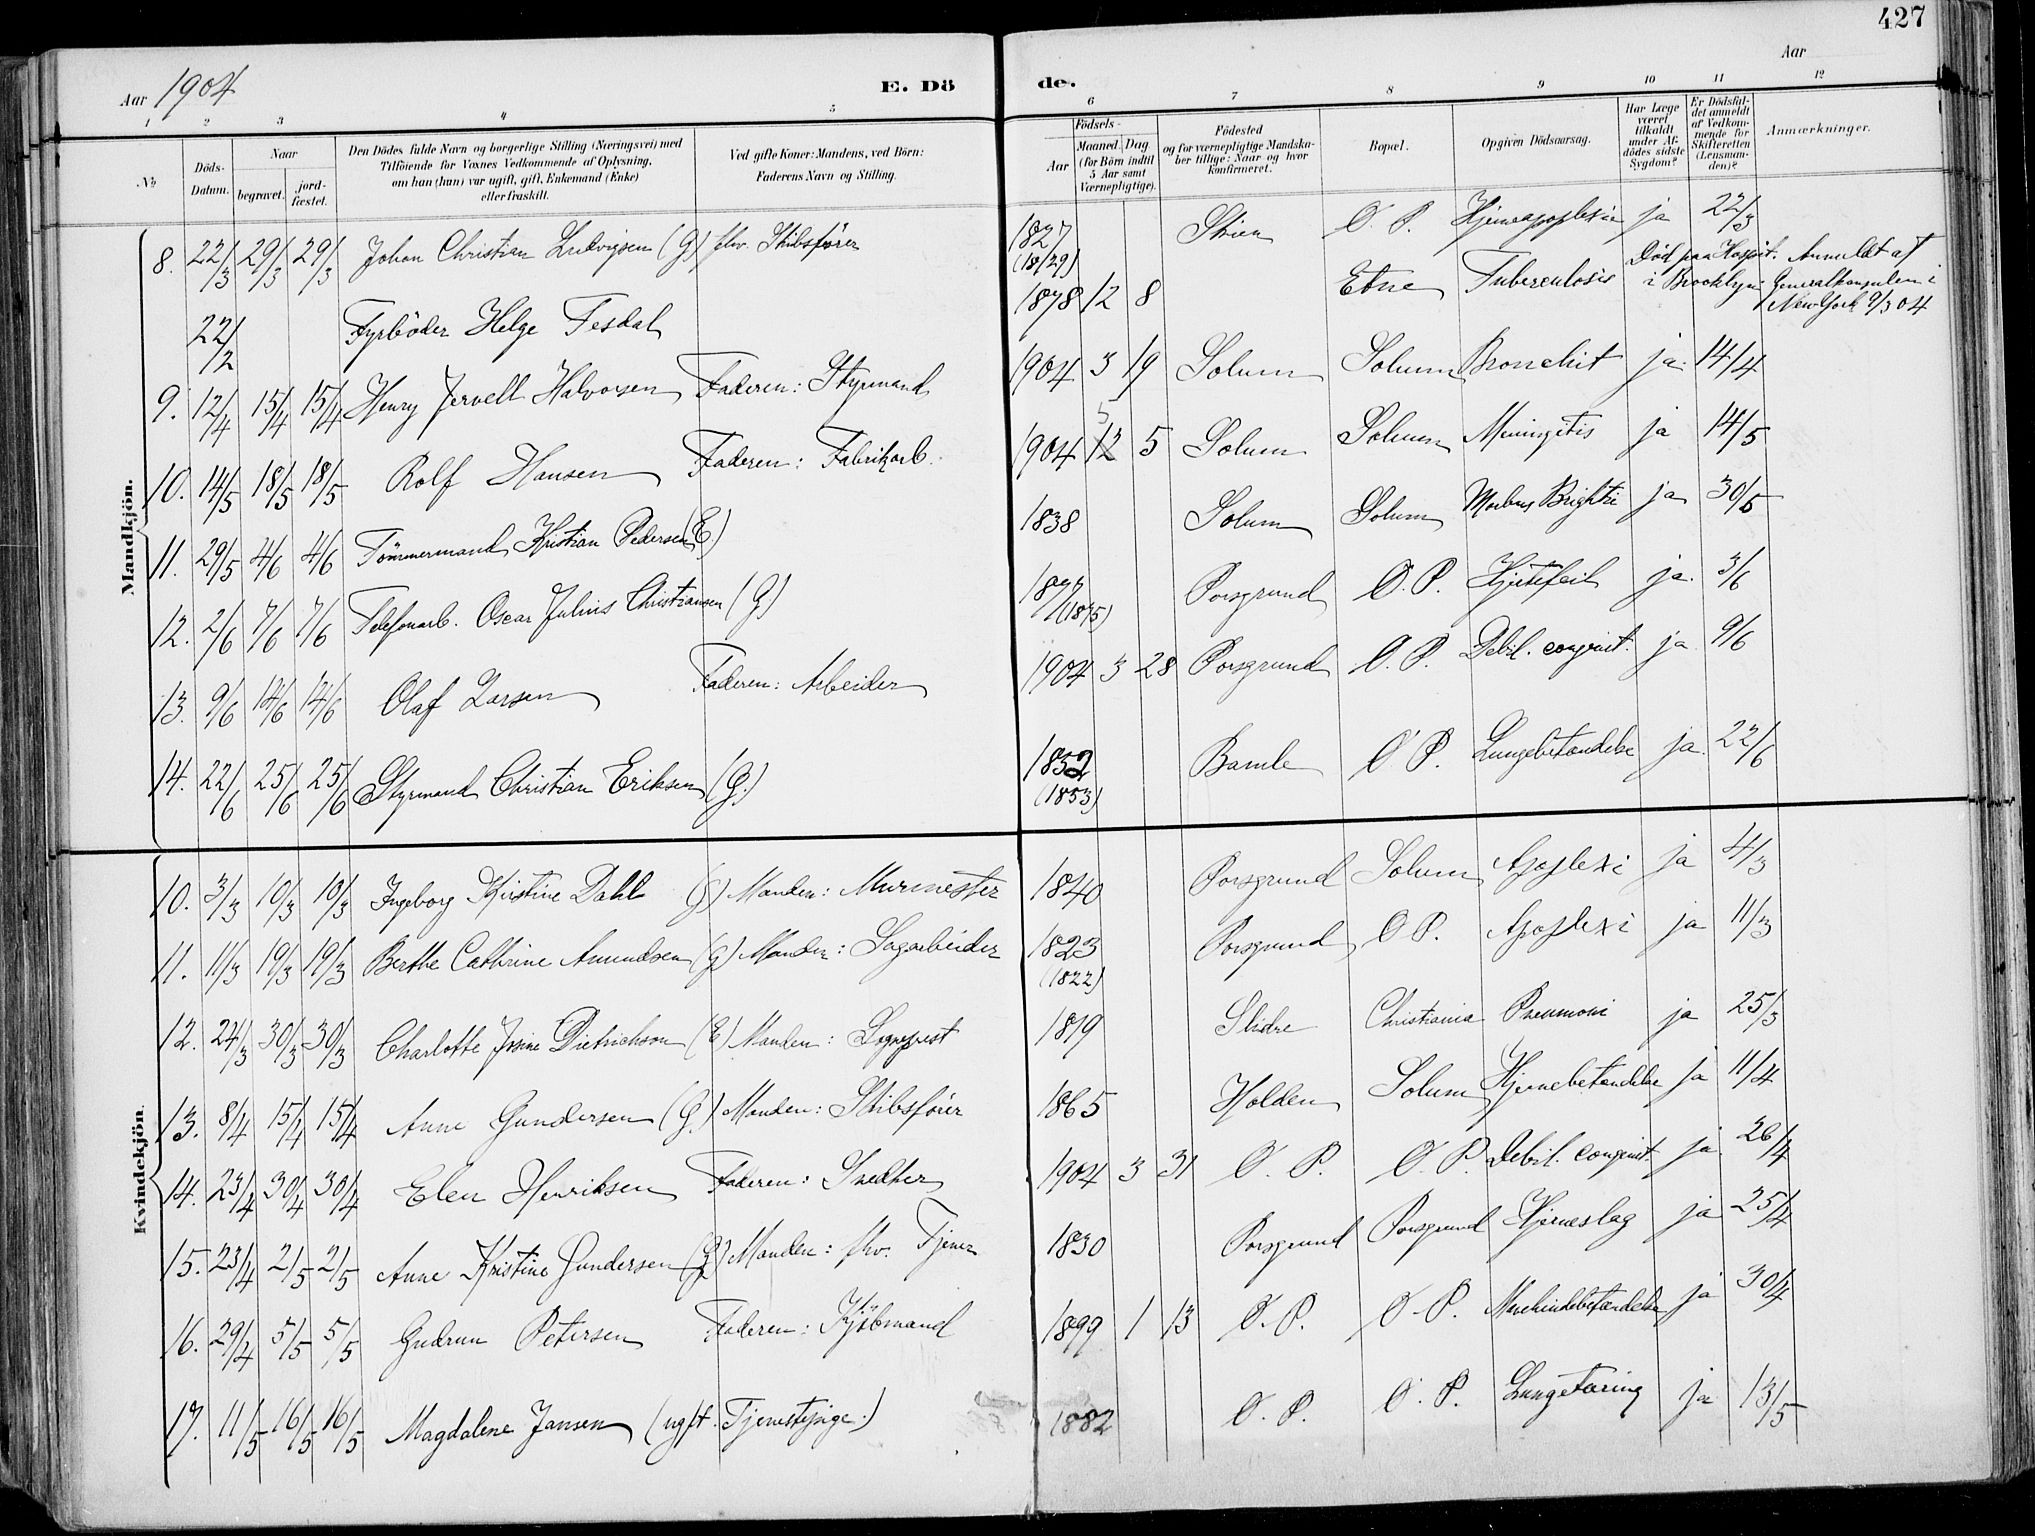 427
Aar 1904
E. Dö de.
Aar
1 2 3 4 5 6 7 8 9 10 11 12
No
Döds-Datum.
Naar begravet. jord-fæstet.
Den Dödes fulde Navn og borgerlige Stilling (Næringsvei) med
Tilföiende for Voxnes Vedkommende af Oplysning,
om han (hun) var ugift, gift, Enkemand (Enke)
eller fraskilt.
Ved gifte Koner: Mandens, ved Börn:
Faderens Navn og Stilling.
Födsels-
Aar Maaned. Dag.
(for Börn indtil
5 Aar samt
Værnepligtige).
Födested
og for værnepligtige Mandska-
ber tillige: Naar og hvor
konfirmeret.
Bopæl.
Opgiven Dödsaarsag.
Har Læge
været
tilkaldt
under Af-
dödes sidste
Sygdom?
Er Dödsfal-
det anmeldt
af Vedkom-
mende for
Skifteretten
(Lensman-
den)?
Anmærkninger.
Mandkjön.
8. 22/3 29/3 29/3 Johan Christian Ludvigsen (G) fhv. Skibsfører 1827 (18/29) Skien Ø. P. Hjerneapoplexie ja 22/3
22/2 Fyrbøder Helge Tesdal 1878 12 8 Etne Tuberculosis Død paa Hospit. i Brooklyn Anmeldt af Generalkonsulen i New York 9/3 04
9. 12/4 15/4 15/4 Henry Jervell Halvorsen Faderen: Styrmand 1904 3 19 Solum Solum Bronchit ja 14/4
10. 14/5 18/5 18/5 Rolf Hansen Faderen: Fabrikarb. 1904 12 5 5 Solum Solum Meningitis ja 14/5
11. 29/5 4/6 4/6 Tömmermand Kristian Pedersen (E) 1838 Solum Solum Morbus Brightii ja 30/5
12. 2/6 7/6 7/6 Telefonarb. Oscar Julius Christiansen (G) 1877 (1875) Porsgrund Ø. P. Hjertefeil ja. 3/6
13. 9/6 14/6 14/6 Olaf Larsen Faderen: Arbeider 1904 3 28 Porsgrund Ø. P. Debil. congenit. ja 9/6
14. 22/6 25/6 25/6 Styrmand Christian Eriksen (G.) 1852 (1853) Bamle Ø. P. Lungebetændelse ja 22/6
Kvindekjön.
10. 3/3 10/3 10/3 Ingeborg Kristine Dahl (G) Manden: Murmester 1840 Porsgrund Solum Apoplexi ja 4/3
11. 11/3 19/3 19/3 Berthe Cathrine Amundsen (G) Manden: Sagarbeider 1823 (1822) Porsgrund Ø P. Apoplexi ja 11/3
12. 24/3 30/3 30/3 Charlotte Josine Dietrichson (E) Manden: Sogneprest 1819 Slidre Christiania Pneumoni ja 25/3
13. 8/4 15/4 15/4 Anne Gundersen (G.) Manden: Skibsfører 1865 Holden Solum Hjernebetændelse ja 11/4
14. 23/4 30/4 30/4 Elen Henriksen Faderen: Snedker 1904 3 31 Ø. P. Ø. P. Debil. congenit. ja 26/4
15. 23/4 2/5 2/5 Anne Kristine Gundersen (G) Manden: fhv. Tjener 1830 Porsgrund Porsgrund Hjerneslag ja 25/4
16. 29/4 5/5 5/5 Gudrun Petersen Faderen: Kjöbmand 1899 1 13 Ø. P. Ø. P. ja 30/4
17. 11/5 16/5 16/5 Magdalene Jansen (ugift. Tjenestepige.) 1882 Ø. P. Ø. P. Lungetæring ja 13/5